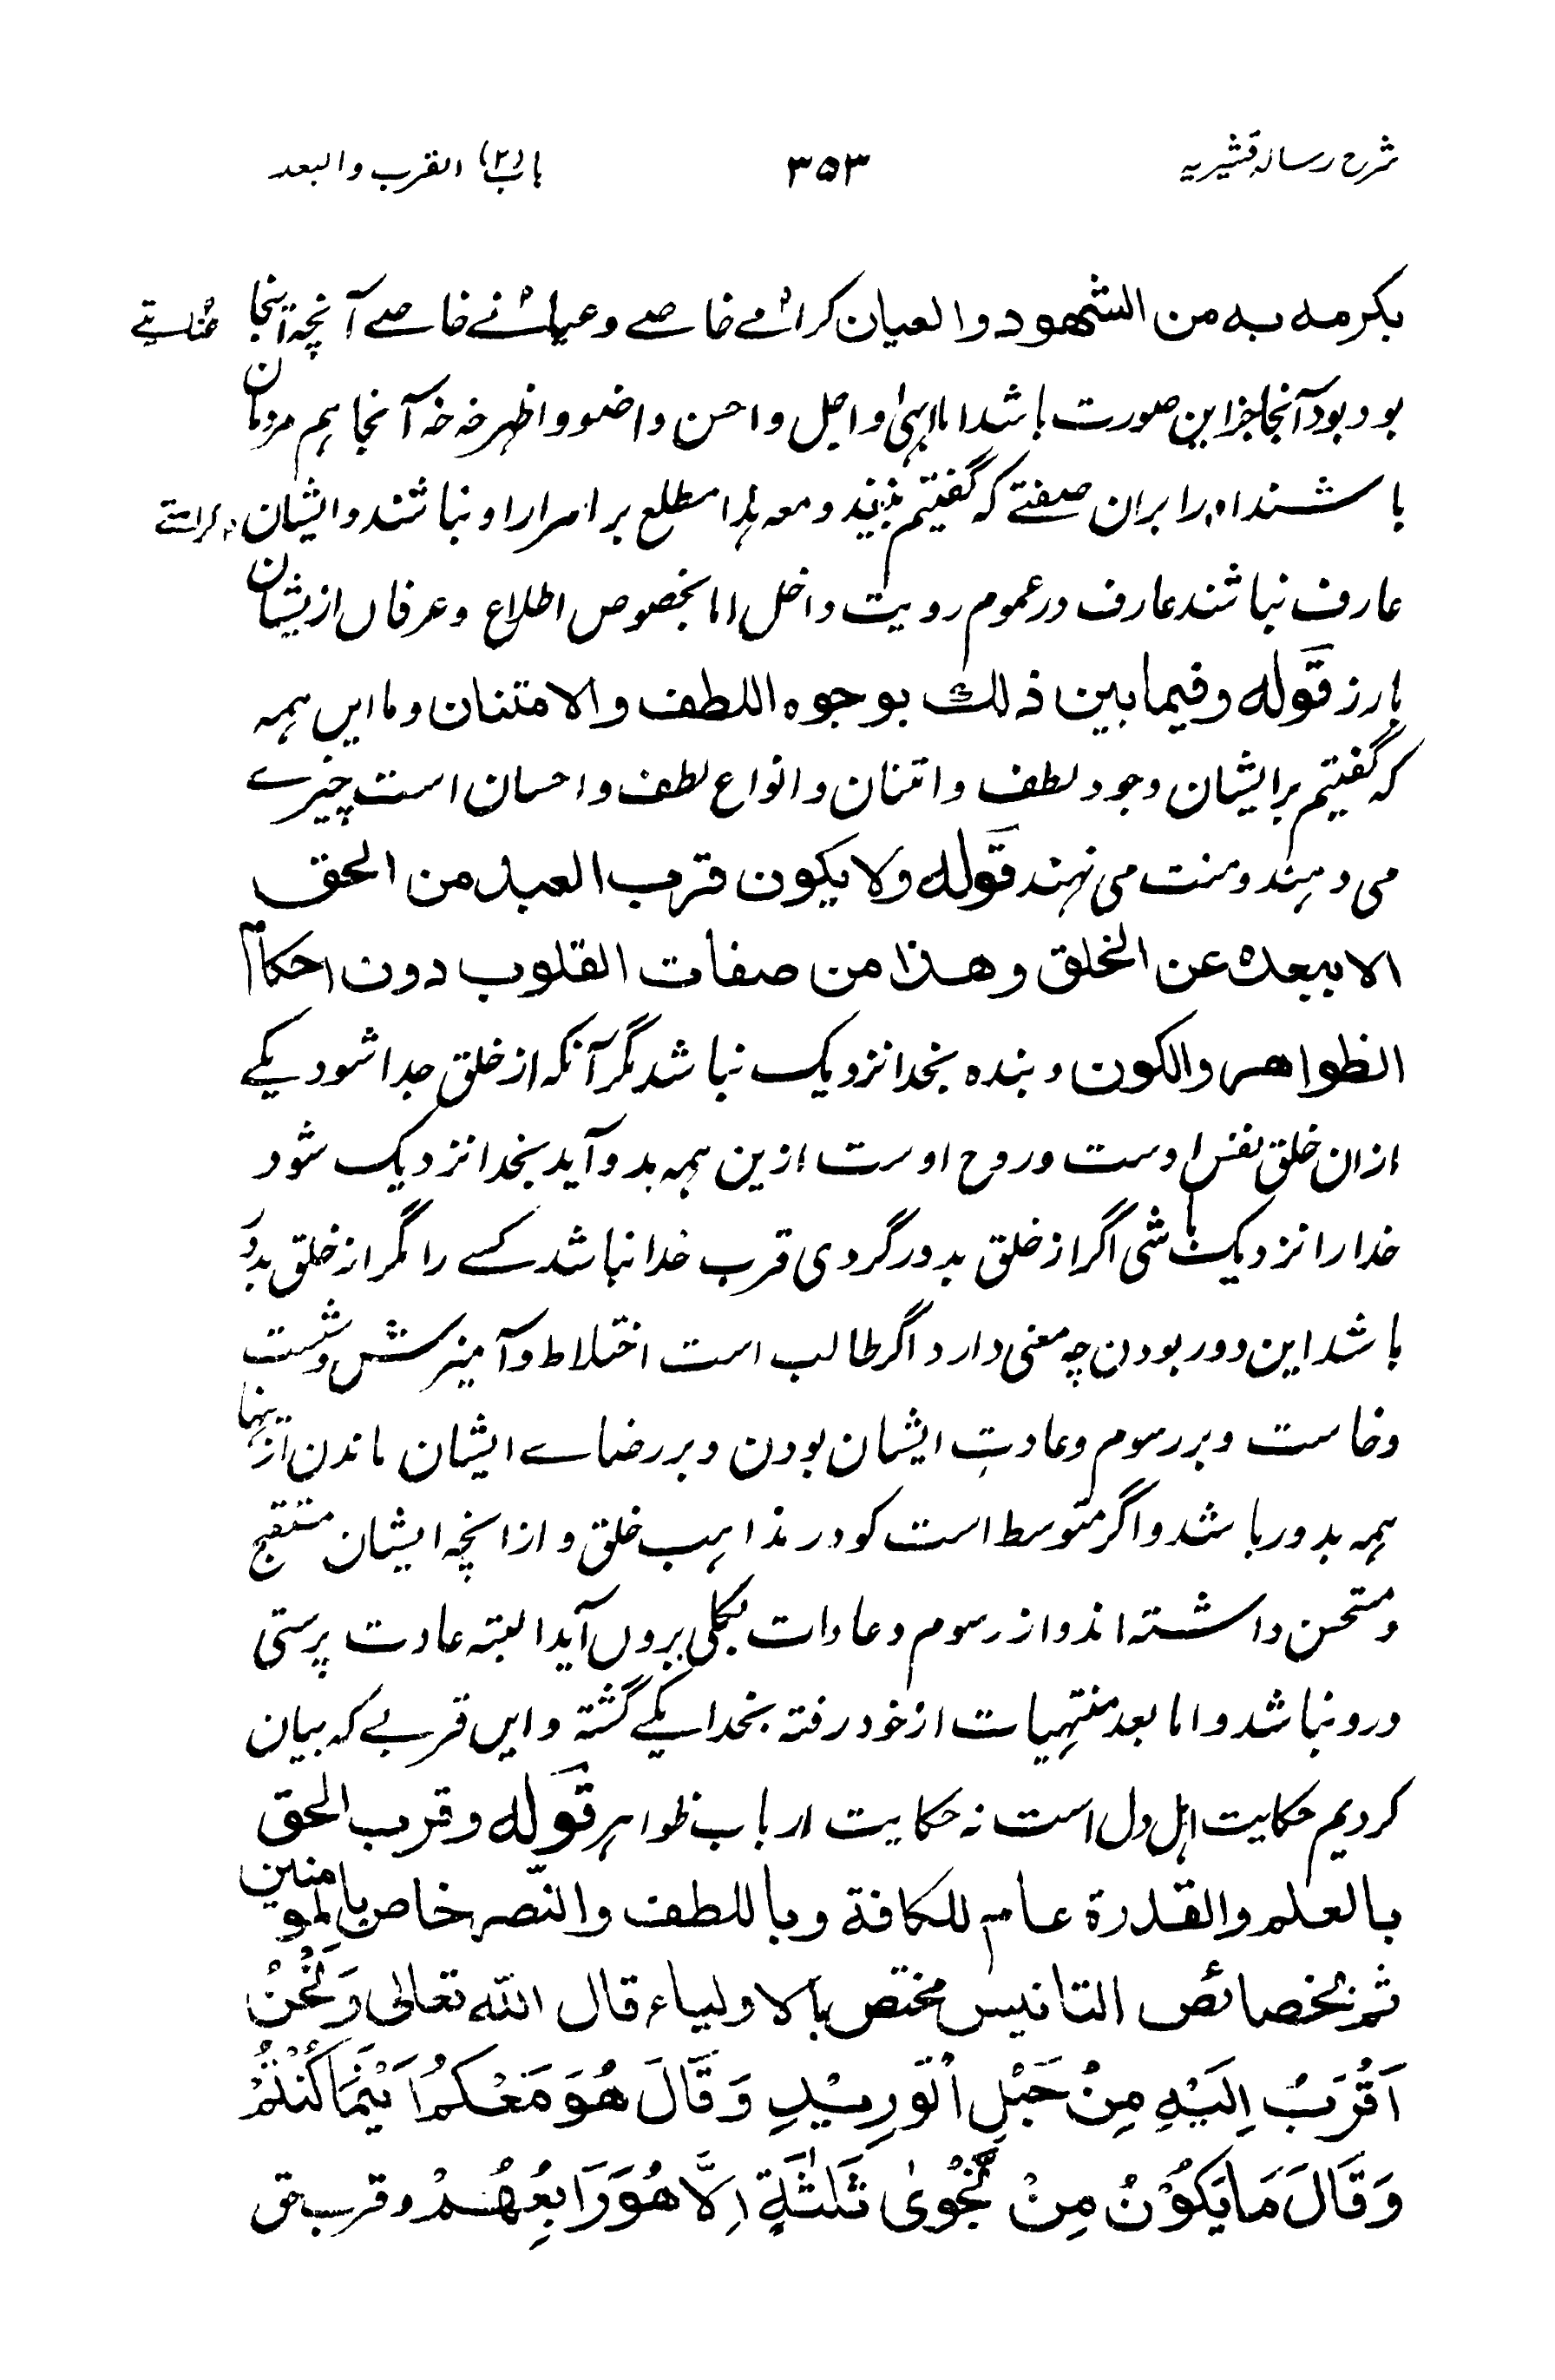 شرح رسالہ قشیریہ ۳۵۳ باب (۲) القرب والبعد
بکرمه به من الشهود والعیان کرامتے خاصے وعیانے خاصے آنچه اینجا
بود بود آنجا جز این صورت باشد اما ابہیٰ واجل واحسن واضوو اظہر خه خه آنجا ہم مردمان
باشند اورا بران صفتے که گفتیم بینند ومعه ہذا مطلع بر اسرار او نباشند وایشان
عارف نباشند عارف در عموم رویت داخل اما بخصوص اطلاع وعرفاں ازیشان
بارز قوله وفیما بین ذلك بوجوه اللطف والامتنان وما ایں ہمه
که گفتیم بر ایشان وجود لطف واتنان وانواع لطف واحسان است چیزے
می دہند ومنت می نہند قوله ولا یکون قرب العبد من الحق
الا ببعده عن الخلق وهذا من صفات القلوب دون احکام
الظواهر والکون وبنده بخدا نزدیک نباشد مگر آنکه از خلق جدا شود یکے
ازان خلق نفس اوست وروح اوست ازین ہمه بدو آید بخدا نزدیک شود
خدا را نزدیک باشی اگر از خلق بدور گردی قرب خدا نباشد کسے را مگر از خلق بدور
باشد این دور بودن چه معنی دارد اگر طالب است اختلاط وآمیزش ونشست
وخاست وبر رسوم وعادتِ ایشان بودن وبر رضاے ایشان ماندن ازینہا
ہمه بدور باشد واگر متوسط است کو در مذاہب خلق وازانچه ایشان مستقبح
ومستحسن داشته اند واز رسوم وعادات بکلی بروں آید البته عادت پرستی
درو نباشد واما بعد منتہیات از خود رفته بخدا یکے گشته وایں قربے که بیان
کردیم حکایت اہل دل است نه حکایت ارباب ظواہر قوله وقرب الحق
بالعلم والقدرة عام للکافة وباللطف والنصر خاص بالمومنین
ثم بخصائص التانیس مختص بالاولیاء قال الله تعالی وَنَحْنُ
اَقْرَبُ اِلَیْهِ مِنْ حَبْلِ الْوَرِیْدِ وَقَالَ هُوَ مَعَکُمْ اَیْنَمَا کُنْتُمْ
وَقَالَ مَا یَکُوْنُ مِنْ نَّجْوٰی ثَلٰثَةٍ اِلَّا هُوَ رَابِعُهُمْ وقرب حق